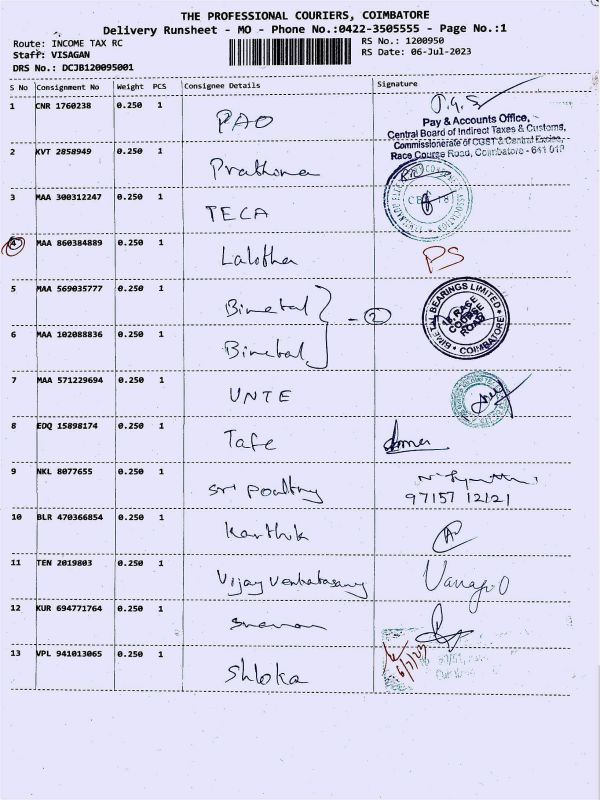 THE PROFESSIONAL COURIERS, COIMBATORE
Delivery Runsheet - MO - Phone No.:0422-3505555 - Page No.:1
Route: INCOME TAX RC
RS No.: 1200950
Staff: VISAGAN
RS Date: 06-Jul-2023
DRS No.: DCJB120095001
S No Consignment No Weight PCS Consignee Details Signature
1 CNR 1760238 0.250 1 PAO
Pay & Accounts Office,
Central Board of Indirect Taxes & Customs,
Commissionerate of CGST & Central Excise,
Race Course Road, Coimbatore - 641 018
2 KVT 2858949 0.250 1 Prathima
3 MAA 300312247 0.250 1 TECA
4 MAA 860384889 0.250 1 Lalitha PS
5 MAA 569035777 0.250 1 Bimetal
- 2
BIMETAL BEARINGS LIMITED
18, RACE
COURSE
ROAD
COIMBATORE
6 MAA 102088836 0.250 1 Bimetal
7 MAA 571229694 0.250 1 UNTE
8 EDQ 15898174 0.250 1 Tafe
9 NKL 8077655 0.250 1 Sri Poultry
97157 12121
10 BLR 470366854 0.250 1 Karthik
11 TEN 2019803 0.250 1 Vijay Venkatasamy
12 KUR 694771764 0.250 1
13 VPL 941013065 0.250 1 Shloka
6/7/23